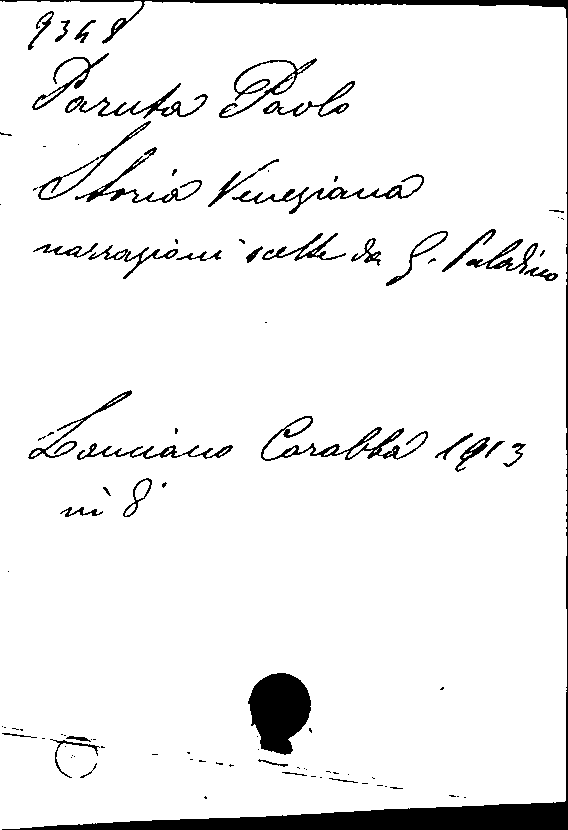 9348
Paruta Paolo
Storia Veneziana
narrazioni scelte da G. Paladino
Lanciano Carabba 1913
in 8°